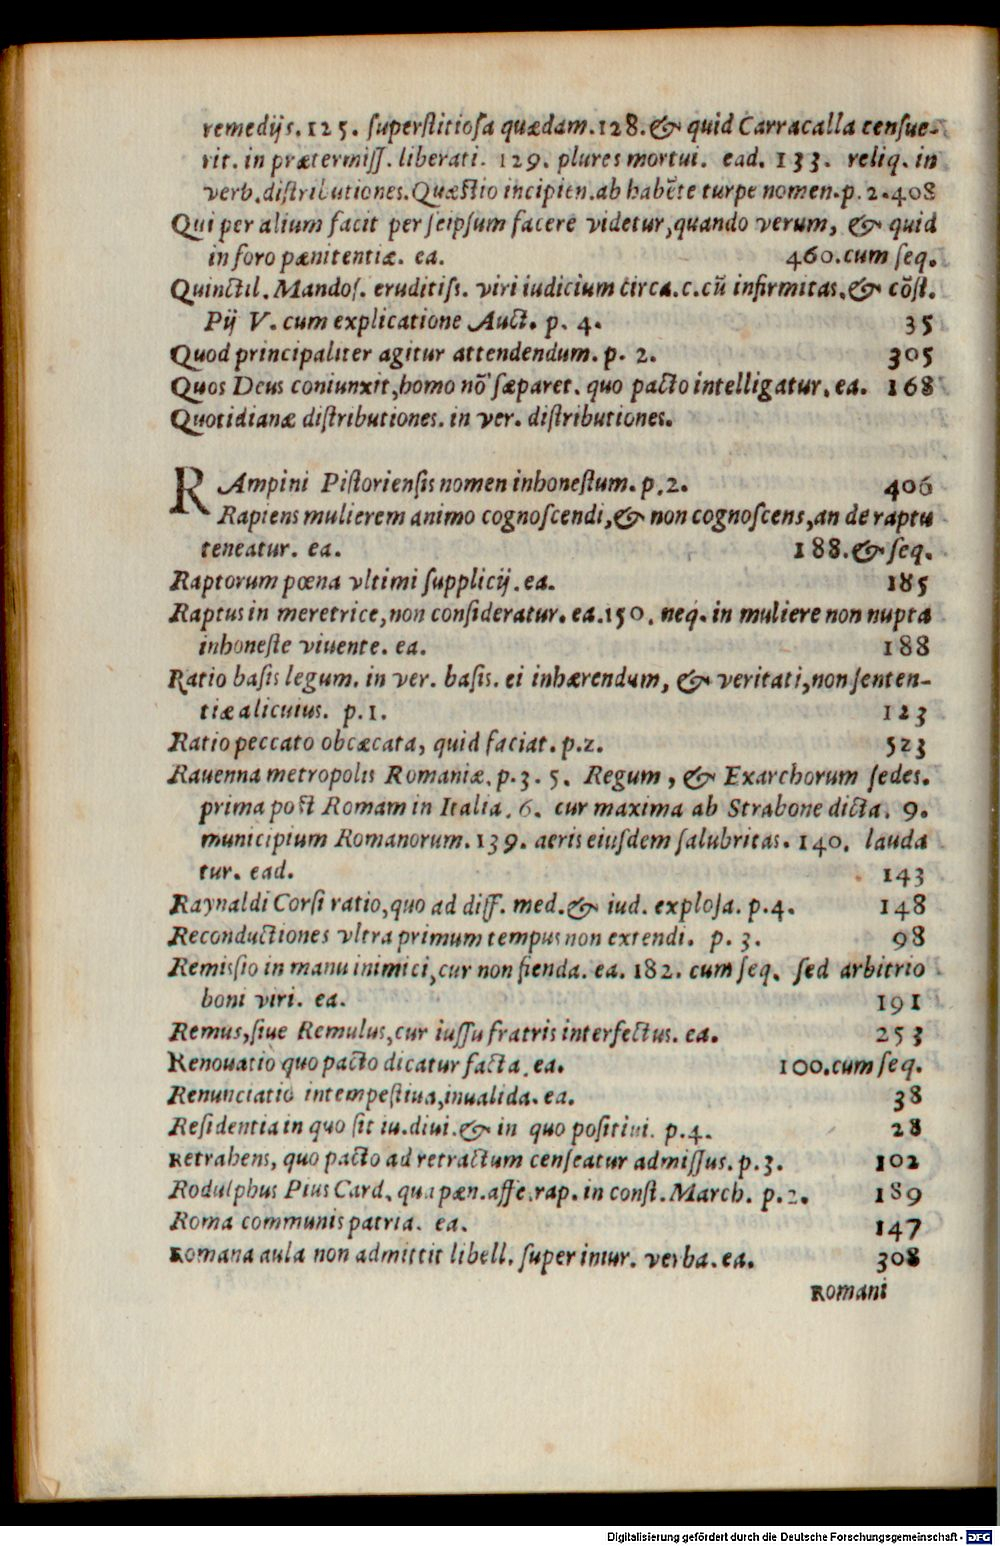 remedijs. 125. superstitiosa quædam. 128. & quid Carracalla censue-
rit. in prætermiss. liberati. 129. plures mortui. ead. 133. reliq. in
verb. distributiones. Quæstio incipien. ab habēte turpe nomen. p. 2. 408
Qui per alium facit per seipsum facere videtur, quando verum, & quid
in foro pænitentiæ. ea. 460. cum seq.
Quinctil. Mandos. eruditiss. viri iudicium circa. c. cū infirmitas, & cōst.
Pij V. cum explicatione Auct. p. 4. 35
Quod principaliter agitur attendendum. p. 2. 305
Quos Deus coniunxit, homo nō sæparet. quo pacto intelligatur. ea. 168
Quotidianæ distributiones. in ver. distributiones.
RAmpini Pistoriensis nomen inhonestum. p. 2. 406
Rapiens mulierem animo cognoscendi, & non cognoscens, an de raptu
teneatur. ea. 188. & seq.
Raptorum pœna vltimi supplicij. ea. 185
Raptus in meretrice, non consideratur. ea. 150. neq. in muliere non nupta
inhoneste viuente. ea. 188
Ratio basis legum. in ver. basis. ei inhærendum, & veritati, non senten-
tiæ alicuius. p. 1. 123
Ratio peccato obcæcata, quid faciat. p. 2. 523
Rauenna metropolis Romaniæ. p. 3. 5. Regum, & Exarchorum sedes.
prima post Romam in Italia. 6. cur maxima ab Strabone dicta. 9.
municipium Romanorum. 139. aeris eiusdem salubritas. 140. lauda
tur. ead. 143
Raynaldi Corsi ratio, quo ad diff. med. & iud. explosa. p. 4. 148
Reconductiones vltra primum tempus non extendi. p. 3. 98
Remissio in manu inimici, cur non fienda. ea. 182. cum seq. sed arbitrio
boni viri. ea. 191
Remus, siue Remulus, cur iussu fratris interfectus. ea. 253
Renouatio quo pacto dicatur facta. ea. 100. cum seq.
Renunciatio intempestiua, inualida. ea. 38
Residentia in quo sit iu. diui. & in quo positiui. p. 4. 28
Retrahens, quo pacto ad retractum censeatur admissus. p. 3. 102
Rodulphus Pius Card. qua pæn. affe. rap. in const. March. p. 2. 189
Roma communis patria. ea. 147
Romana aula non admittit libell. super iniur. verba. ea. 308
Romani
Digitalisierung gefördert durch die Deutsche Forschungsgemeinschaft - DFG